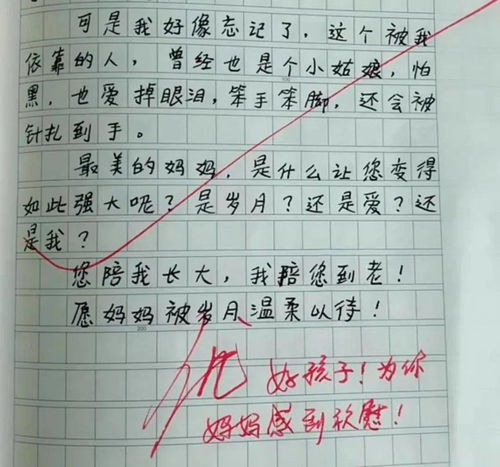 可是我好像忘记了，这个被我
依靠的人，曾经也是个小姑娘，怕
黑，也爱掉眼泪，笨手笨脚，还会被
针扎到手。
最美的妈妈，是什么让您变得
如此强大呢？是岁月？还是爱？还
是我？
您陪我长大，我陪您到老！
愿妈妈被岁月温柔以待！
优
好孩子！为你
妈妈感到欣慰！